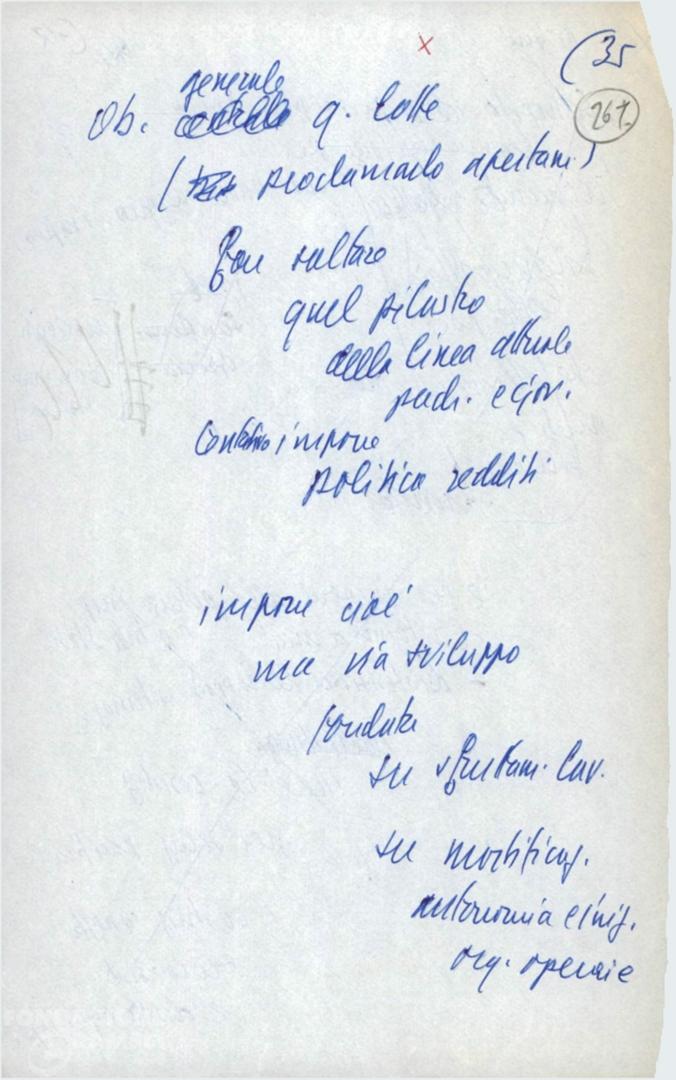 (35
26t.
generale
Ob. centrale q. lotte
( proclamarlo apertam.)
Far saltare
quel pilastro
della linea attuale
padr. e gov.
Contratti impone
politica redditi
impone cioè
una via sviluppo
fondata
su sfruttam. lav.
su mortificaz.
autonomia e iniz.
org. operaie